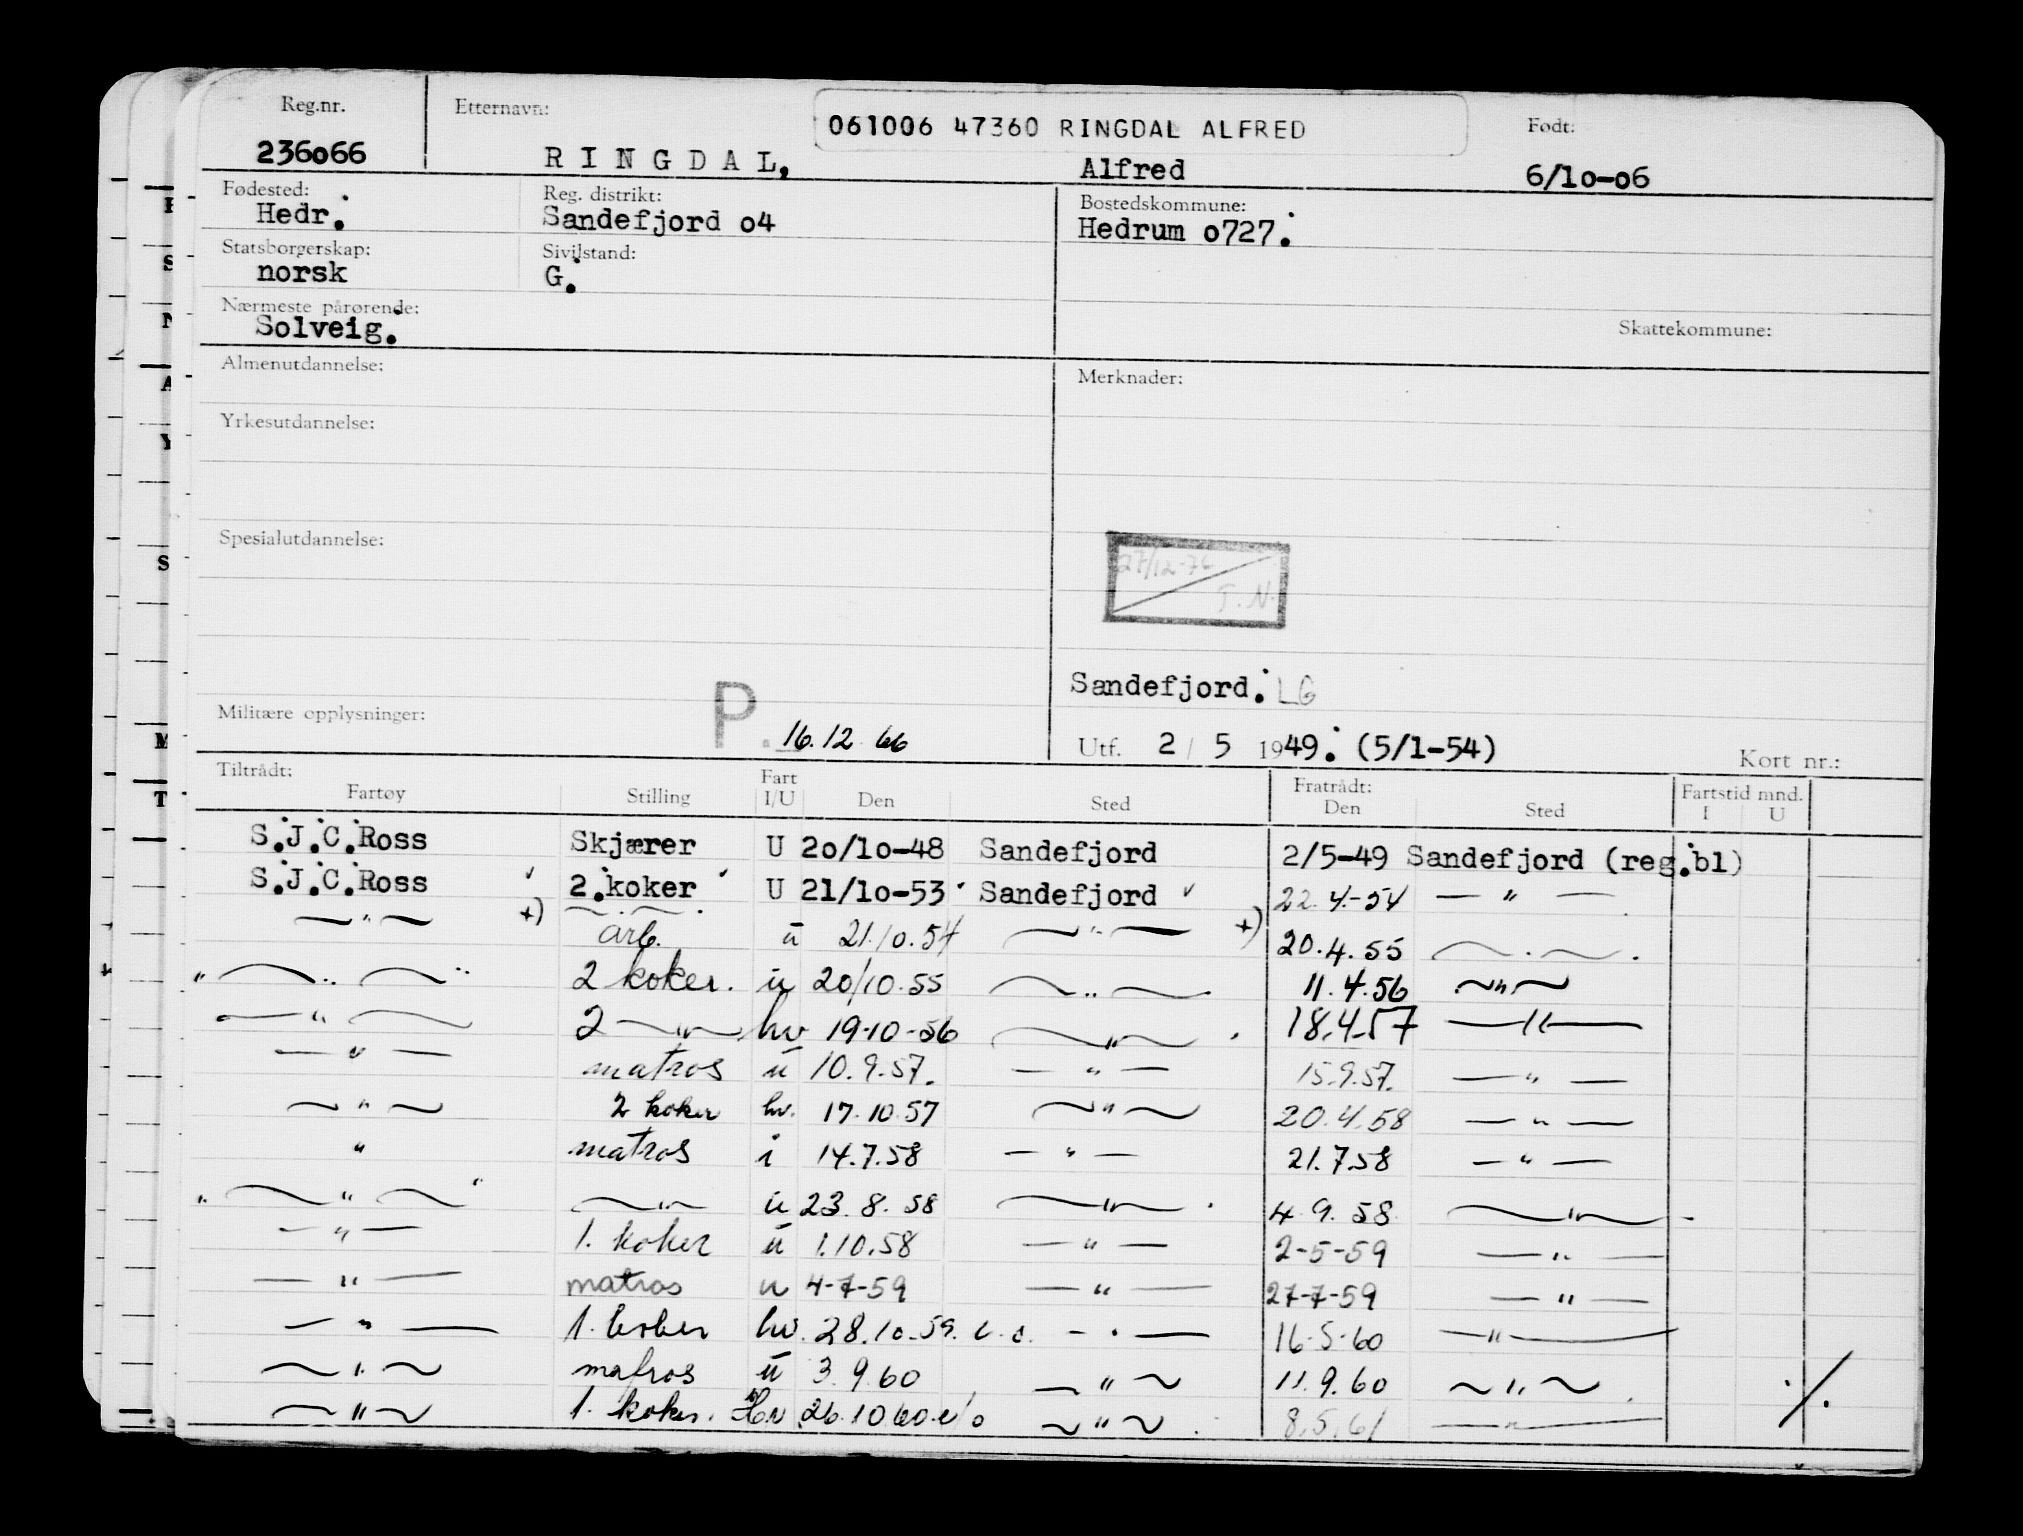 Reg.nr. Etternavn: 061006 47360 RINGDAL ALFRED Født:
236o66 RINGDAL, Alfred 6/1o-o6
Fødested: Reg. distrikt: Bostedskommune:
Hedr. Sandefjord o4 Hedrum o727.
Statsborgerskap: Sivilstand:
norsk G.
Nærmeste pårørende: Skattekommune:
Solveig.
Almenutdannelse: Merknader:
Yrkesutdannelse:
Spesialutdannelse:
27/12-76
T.N.
Sandefjord. LG
Militære opplysninger: P. 16.12.66
Utf. 2 / 5 1949. (5/1-54) Kort nr.:
Tiltrådt: Fart Fratrådt: Fartstid mnd.
Fartøy Stilling I/U Den Sted Den Sted I U
S.J.C.Ross Skjærer U 2o/1o-48 Sandefjord 2/5-49 Sandefjord (reg.bl)
S.J.C.Ross 2.koker U 21/1o-53 Sandefjord 22.4.-54 — " —
— " — +) arb. u 21.10.54 — " — +) 20.4.55 — " —
— " — 2 koker. u 20/10.55 — " — 11.4.56 — " —
— " — 2 — " — hv 19-10-56 — " — 18.4.57 — " —
— " — matros u 10.9.57. — " — 15.9.57. — " —
— " — 2 koker hv. 17.10.57 — " — 20.4.58 — " —
" matros i 14.7.58 — " — 21.7.58 — " —
— " — — " — u 23.8.58 — " — 4.9.58 — " —
— " — 1. koker u 1.10.58 — " — 2-5-59 — " —
— " — matros u 4-7-59 — " — 27-7-59 — " —
— " — 1. koker hv. 28.10.59. — " — 16-5-60 — " —
— " — matros u 3.9.60 — " — 11.9.60 — " —
— " — 1. koker. Hv 26.10.60. e/o — " — 8.5.61 — " — ./.